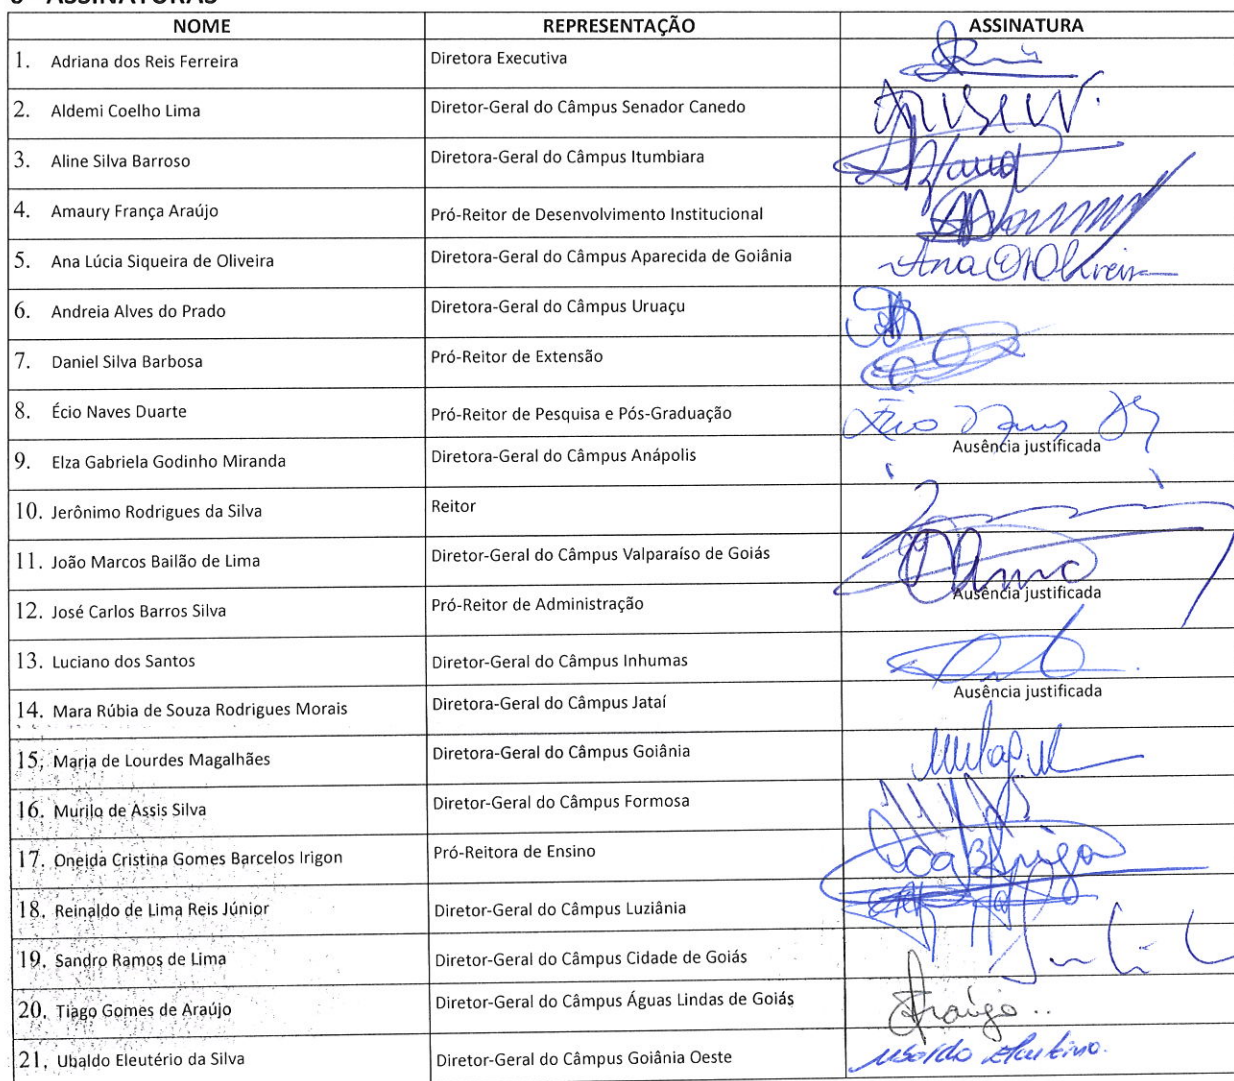 6 - ASSINATURAS
NOME REPRESENTAÇÃO ASSINATURA
1. Adriana dos Reis Ferreira Diretora Executiva
2. Aldemi Coelho Lima Diretor-Geral do Câmpus Senador Canedo
3. Aline Silva Barroso Diretora-Geral do Câmpus Itumbiara
4. Amaury França Araújo Pró-Reitor de Desenvolvimento Institucional
5. Ana Lúcia Siqueira de Oliveira Diretora-Geral do Câmpus Aparecida de Goiânia Ana Oliveira
6. Andreia Alves do Prado Diretora-Geral do Câmpus Uruaçu
7. Daniel Silva Barbosa Pró-Reitor de Extensão
8. Écio Naves Duarte Pró-Reitor de Pesquisa e Pós-Graduação
9. Elza Gabriela Godinho Miranda Diretora-Geral do Câmpus Anápolis Ausência justificada
10. Jerônimo Rodrigues da Silva Reitor
11. João Marcos Bailão de Lima Diretor-Geral do Câmpus Valparaíso de Goiás
12. José Carlos Barros Silva Pró-Reitor de Administração Ausência justificada
13. Luciano dos Santos Diretor-Geral do Câmpus Inhumas
14. Mara Rúbia de Souza Rodrigues Morais Diretora-Geral do Câmpus Jataí Ausência justificada
15. Maria de Lourdes Magalhães Diretora-Geral do Câmpus Goiânia
16. Murilo de Assis Silva Diretor-Geral do Câmpus Formosa
17. Oneida Cristina Gomes Barcelos Irigon Pró-Reitora de Ensino
18. Reinaldo de Lima Reis Júnior Diretor-Geral do Câmpus Luziânia
19. Sandro Ramos de Lima Diretor-Geral do Câmpus Cidade de Goiás
20. Tiago Gomes de Araújo Diretor-Geral do Câmpus Águas Lindas de Goiás Araújo
21. Ubaldo Eleutério da Silva Diretor-Geral do Câmpus Goiânia Oeste